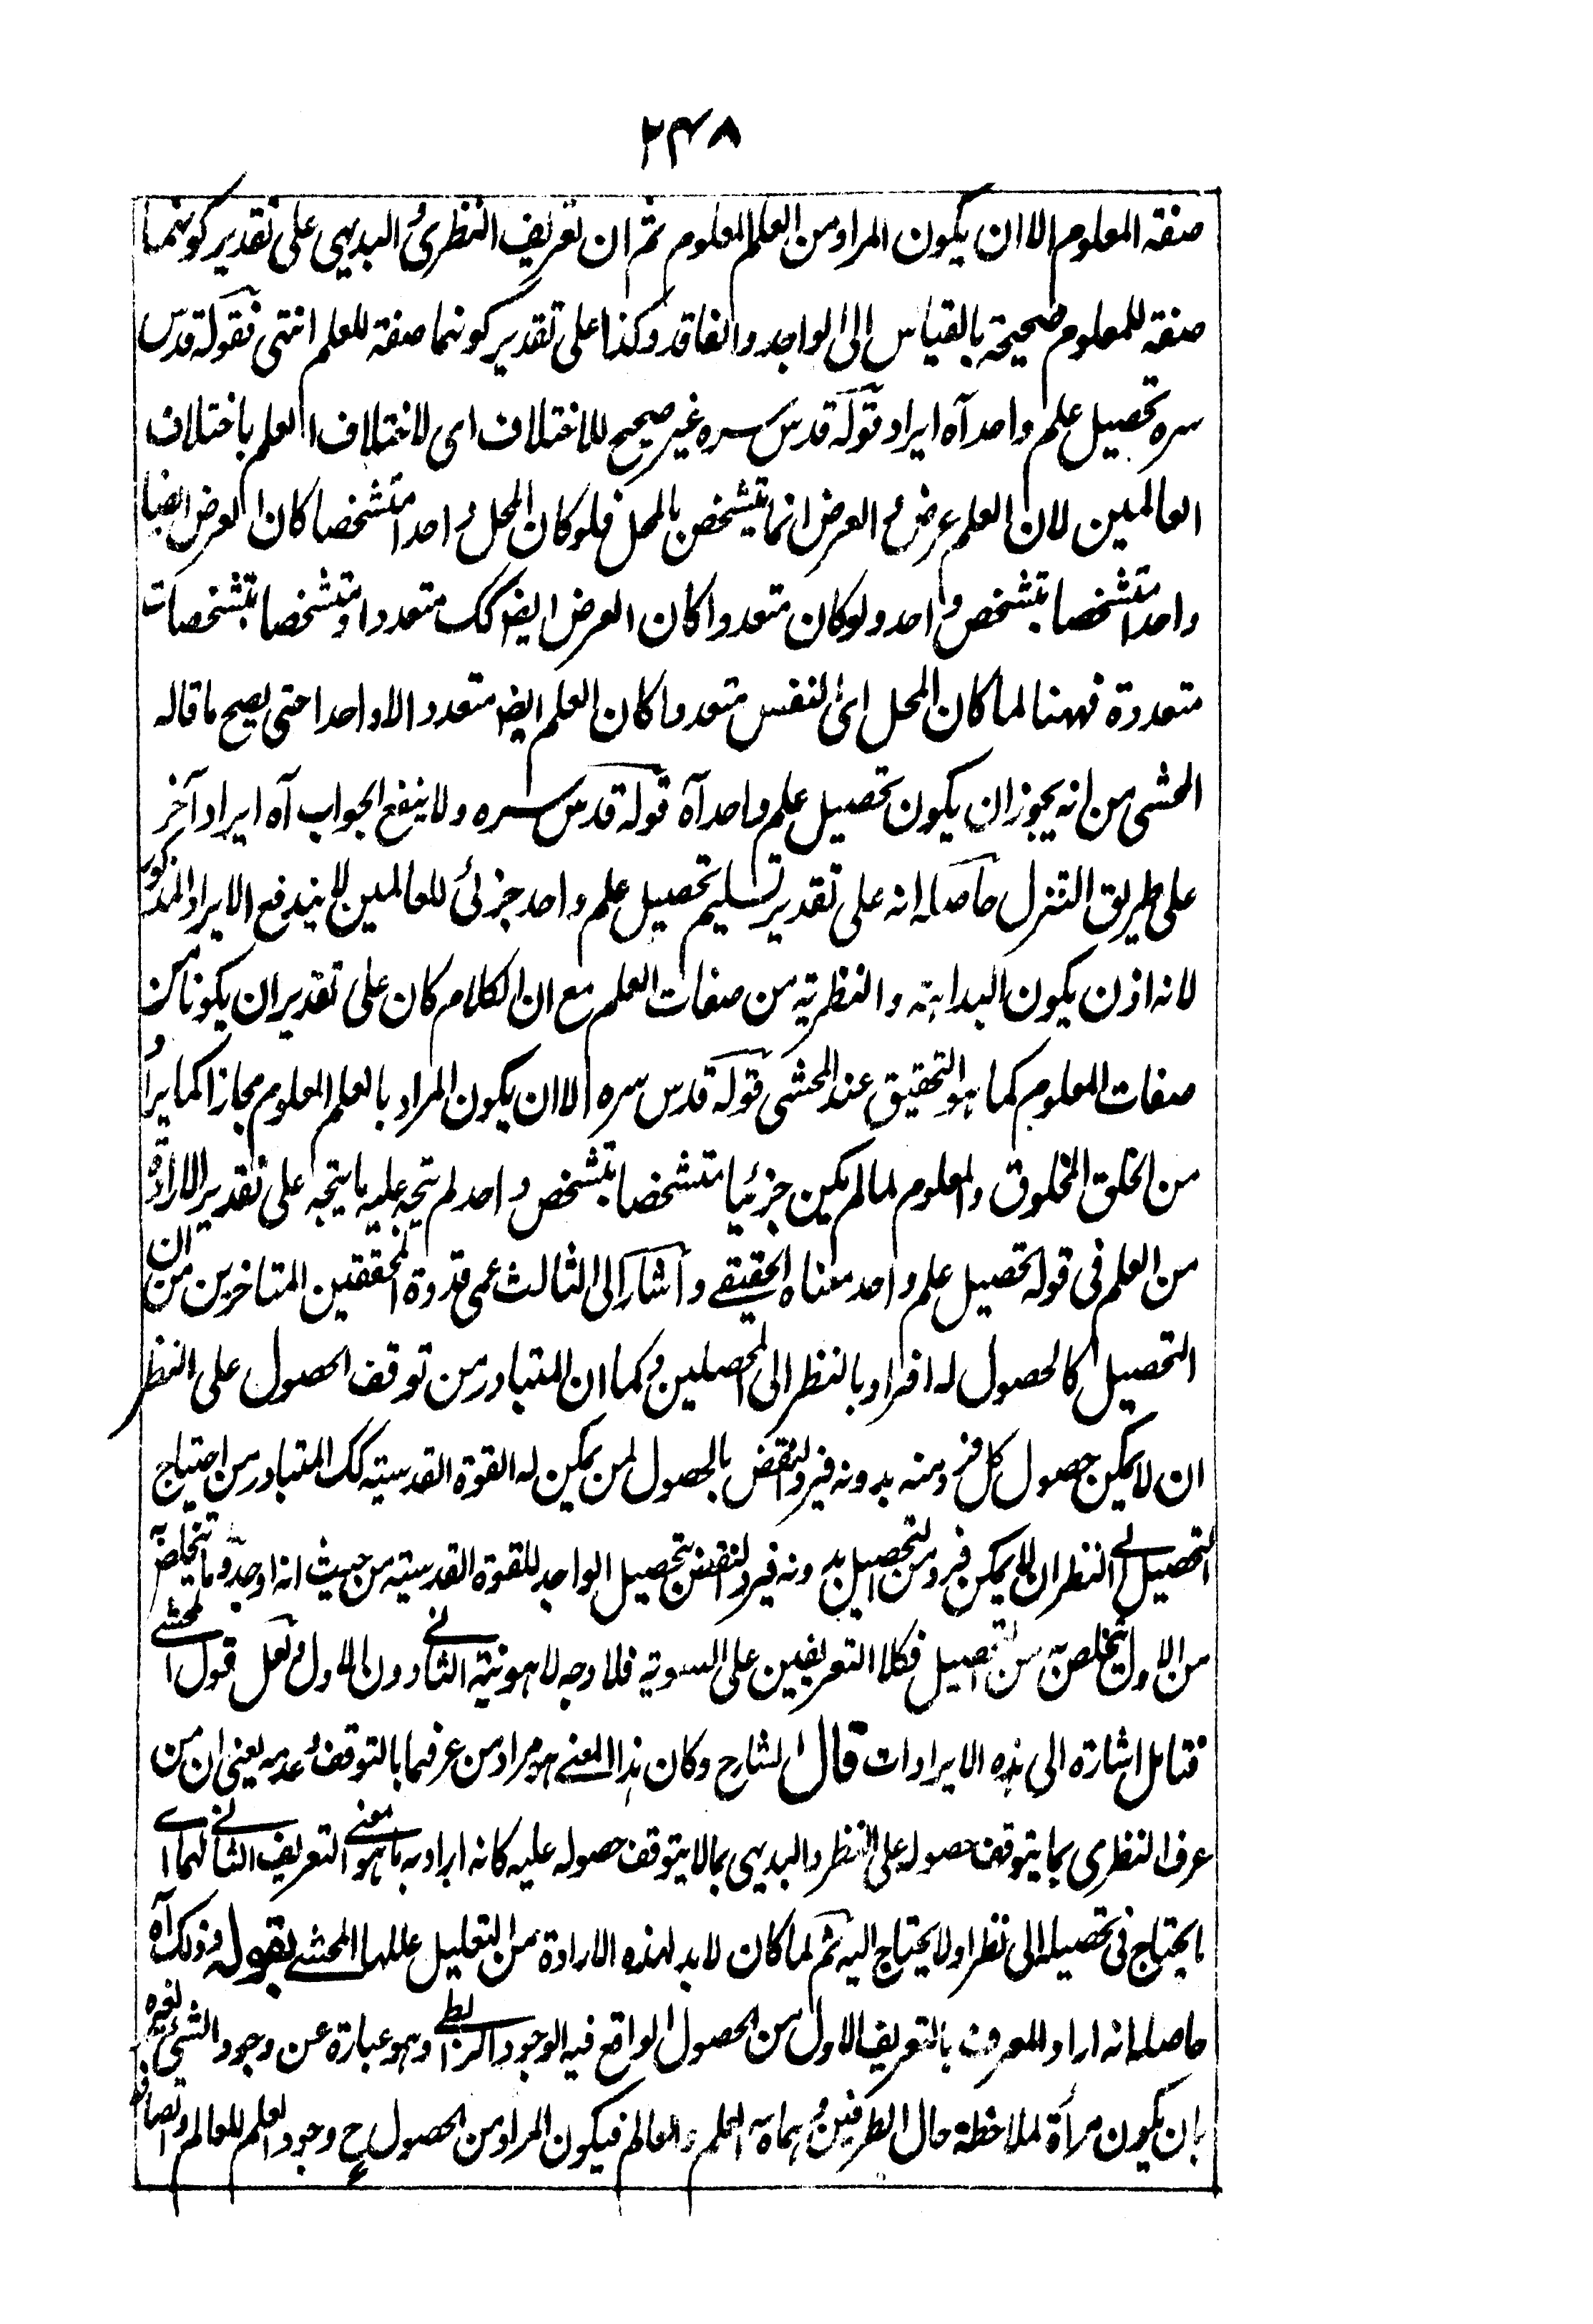 ٢٣٨
صفة المعلوم الا ان يكون المراد من العلم المعلوم ثم ان تعريف النظرى و البديهى على تقدير كونهما
صفة للمعلوم صحيحة بالقياس الى الواجد والفاقد وكذا على تقدير كونهما صفة للعلم انتهى فقوله قدس
سره تحصيل علم واحد آه ايراد قوله قدس سره غير صحيح للاختلاف اى لاختلاف العلم باختلاف
العالمين لان العلم عرض و العرض انما يتشخص بالمحل فلو كان المحل واحدا متشخصا كان العرض ايضا
واحدا متشخصا بتشخص واحد ولو كان متعددا كان العرض ايضا كك متعددا و متشخصا بتشخصات
متعددة فههنا لما كان المحل اى النفس متعددا كان العلم ايضا متعددا لا واحدا حتى يصح ما قاله
المحشى من انه يجوز ان يكون تحصيل علم واحد آه قوله قدس سره ولا ينفع الجواب آه ايراد آخر
على طريق التنزل حاصله انه على تقدير تسليم تحصيل علم واحد جزئى للعالمين لا يندفع الايراد المذكور
لانه اذن يكون البداهة والنظرية من صفات العلم مع ان الكلام كان على تقدير ان يكونا من
صفات المعلوم كما هو التحقيق عند المحشى قوله قدس سره الا ان يكون المراد بالعلم المعلوم مجازا كما يراد
من الخلق المخلوق والمعلوم لما لم يكن جزئيا متشخصا بتشخص واحد لم يتجه عليه ما يتجه على تقدير الارادة
من العلم فى قوله تحصيل علم واحد معناه الحقيقى وأشار الى الثالث عمى قدوة المحققين المتاخرين من ان
التحصيل كالحصول له افراد بالنظر الى المحصلين و كما ان المتبادر من توقف الحصول على النظر
ان لا يمكن حصول كل فرد منه بدونه فيرد النقض بالحصول لمن يمكن له القوة القدسية كك المتبادر من احتياج
التحصيل الى النظر ان لا يمكن فرد من التحصيل بدونه فيرد النقض بتحصيل الواجد للقوة القدسية من حيث انه واجد و ما يتخلص به
من الاول يتخلص به من التحصيل فكلا التعريفين على السوية فلا وجه لاهونية الثانى دون الاول و لعل قول المحشى
فتامل اشارة الى هذه الايرادات قال الشارح وكان هذا المعنى هو مراد من عرفهما بالتوقف و عدمه يعنى ان من
عرف النظرى بما يتوقف حصوله على النظر والبديهى بما لا يتوقف حصوله عليه كانه اراد به ما هو معنى التعريف الثانى لهما اى
ما يحتاج فى تحصيله الى نظر او لا يحتاج اليه ثم لما كان لا بد لهذه الارادة من التعليل عللها المحشى بقوله و ذلك آه
حاصله انه اراد المعرف بالتعريف الاول من الحصول الواقع فيه الوجود الرابطى وهو عبارة عن وجود الشئ لغيره
بان يكون مرآة لملاحظة حال الطرفين و هما ههنا العلم والعالم فيكون المراد من الحصول ح وجود العلم للعالم واتصافه